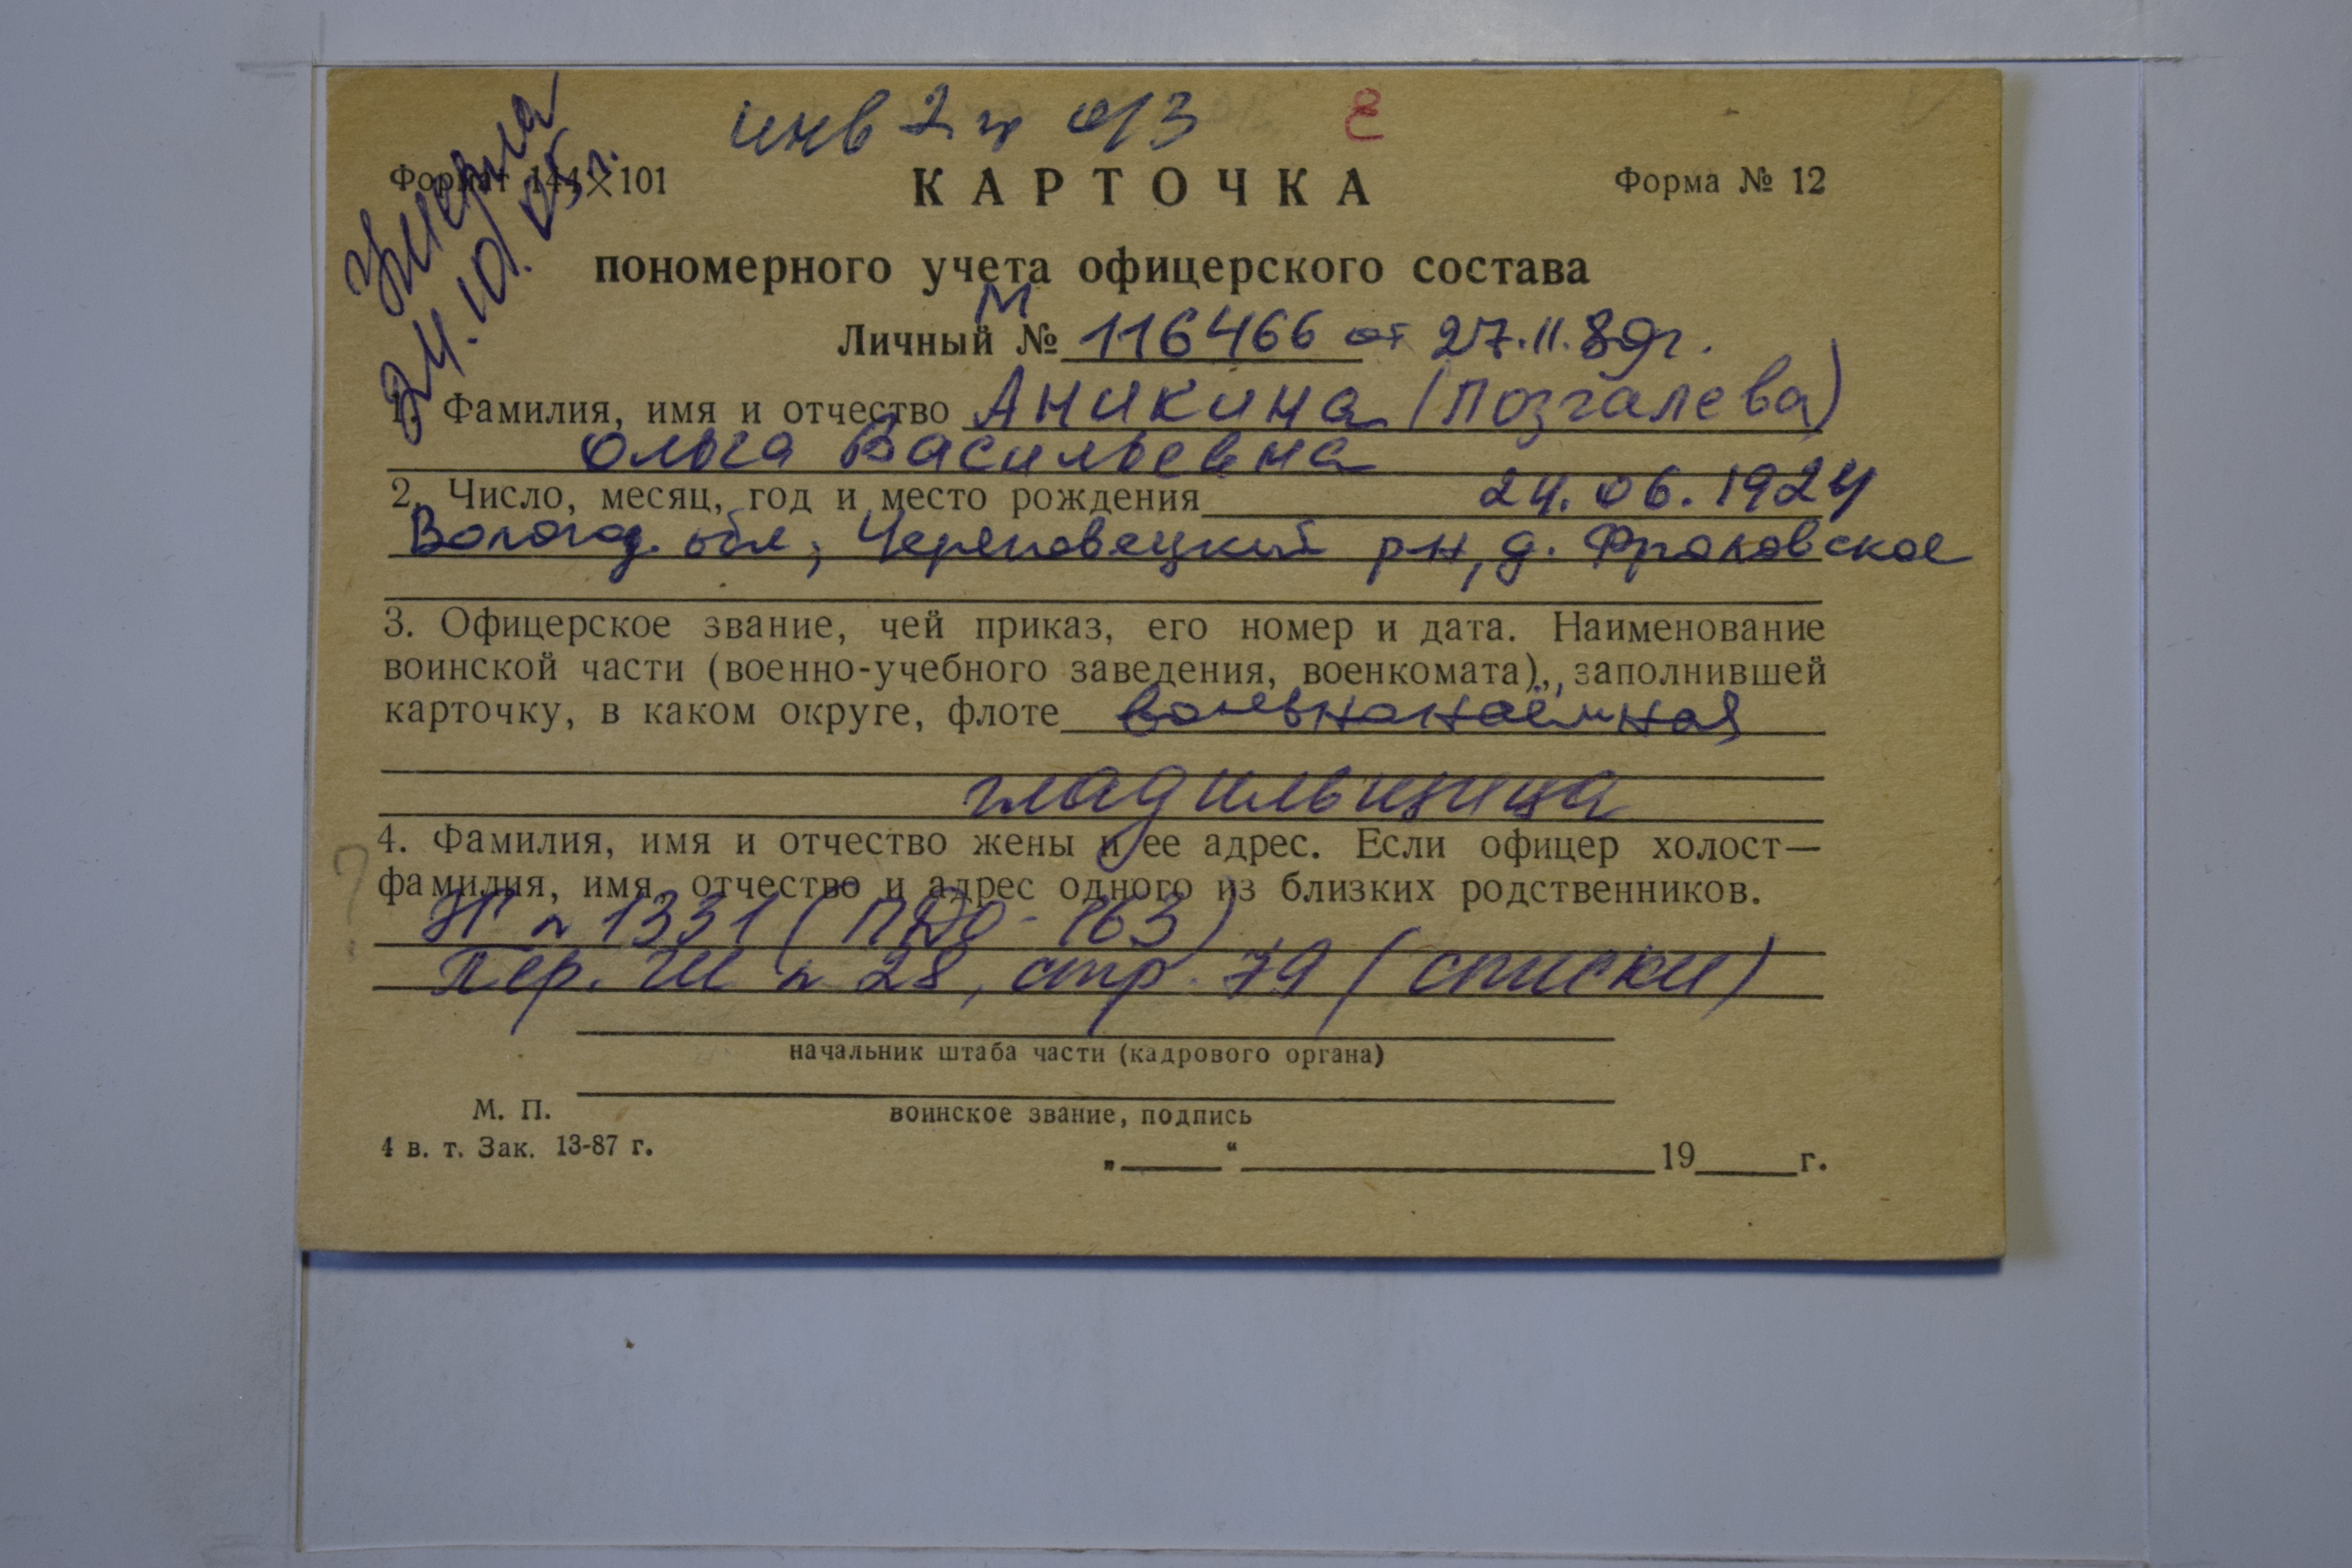 инв 2 гр о/з
Умерла
24.10.05г.
Формат 144×101
Форма № 12
КАРТОЧКА
пономерного учета офицерского состава
Личный № М 116466 от 27.11.89г.
1. Фамилия, имя и отчество Аникина (Позгалева)
Ольга Васильевна
2. Число, месяц, год и место рождения 24.06.1924
Вологод. обл, Череповецкий р-н, д. Фроловское
3. Офицерское звание, чей приказ, его номер и дата. Наименование
воинской части (военно-учебного заведения, военкомата), заполнившей
карточку, в каком округе, флоте вольнонаёмная
гладильщица
4. Фамилия, имя и отчество жены и ее адрес. Если офицер холост—
фамилия, имя, отчество и адрес одного из близких родственников.
1331 ( - 163)
Пер. ГШ № 28, стр. 79 (списки)
начальник штаба части (кадрового органа)
М. П.
воинское звание, подпись
4 в. т. Зак. 13-87 г.
„____“ ____________ 19____г.